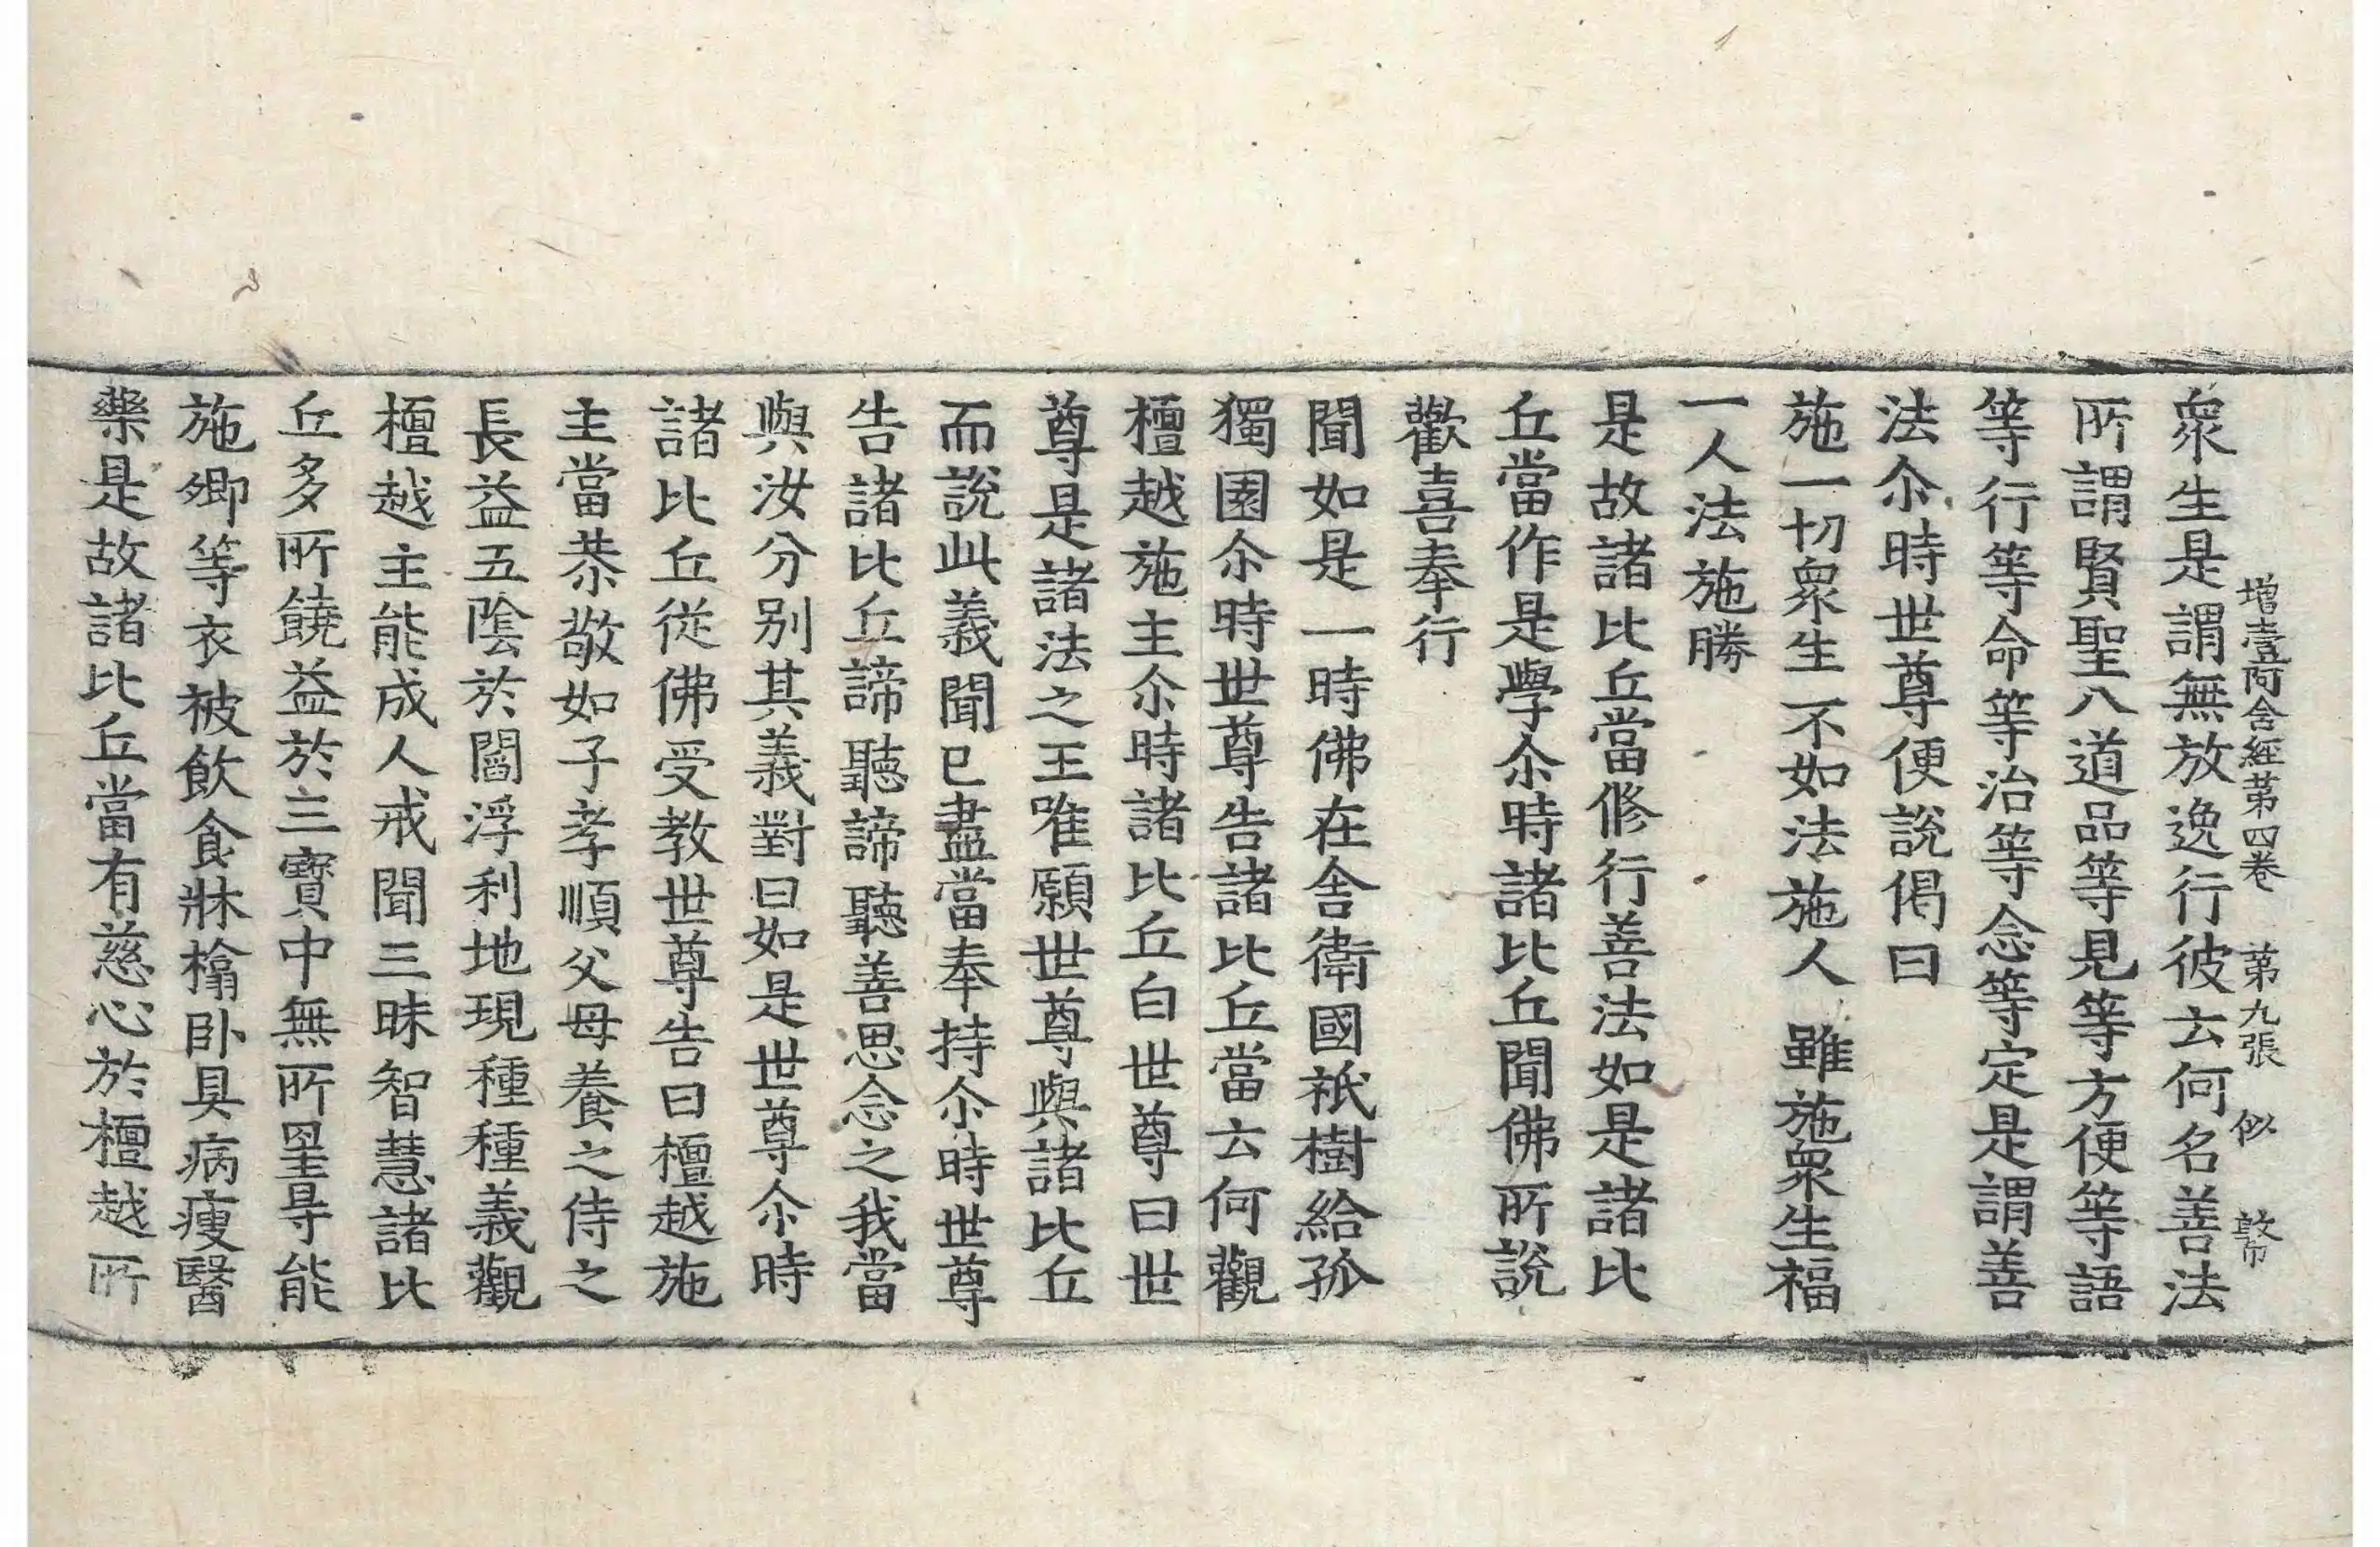 增壹阿含經苐四卷　苐九張　似　敦巾
衆生是謂無放逸行彼云何名善法
所謂賢聖八道品等見等方便等語
等行等命等治等念等定是謂善
法尒時世尊便說偈曰
施一切衆生不如法施人　雖施衆生福
一人法施勝
是故諸比丘當修行善法如是諸比
丘當作是學尒時諸比丘聞佛所說
歡喜奉行
聞如是一時佛在舍衛國祇樹給孤
獨園尒時世尊告諸比丘當云何觀
檀越施主尒時諸比丘白世尊曰世
尊是諸法之王唯願世尊與諸比丘
而說此義聞已盡當奉持尒時世尊
告諸比丘諦聽諦聽善思念之我當
與汝分别其義對曰如是世尊尒時
諸比丘從佛受教世尊告曰檀越施
主當恭敬如子孝順父母養之侍之
長益五陰於閻浮利地現種種義觀
檀越主能成人戒聞三昧智慧諸比
丘多所饒益於三寶中無所罣㝵能
施卿等衣被飲食牀榻卧具病瘦醫
藥是故諸比丘當有慈心於檀越所